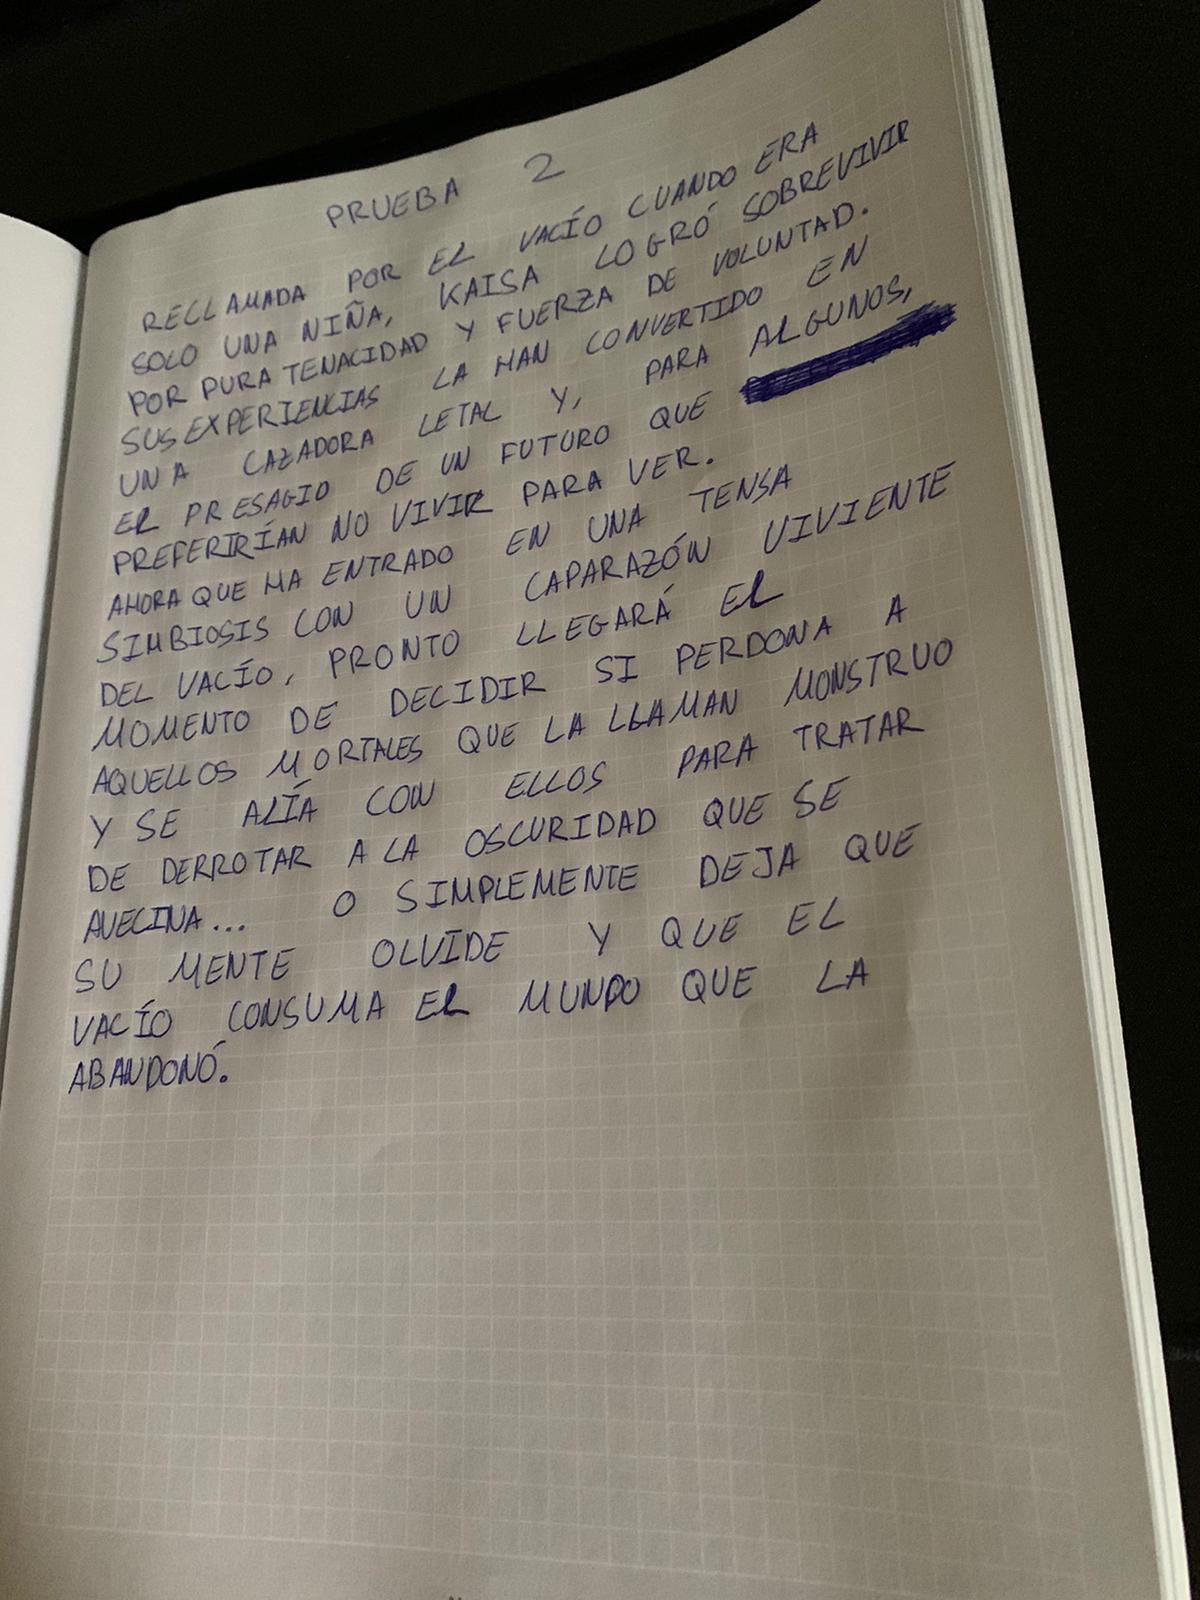 PRUEBA 2
RECLAMADA POR EL VACÍO CUANDO ERA
SOLO UNA NIÑA, KAISA LOGRÓ SOBREVIVIR
POR PURA TENACIDAD Y FUERZA DE VOLUNTAD.
SUS EXPERIENCIAS LA HAN CONVERTIDO EN
UNA CAZADORA LETAL Y, PARA ALGUNOS,
EL PRESAGIO DE UN FUTURO QUE
PREFERIRÍAN NO VIVIR PARA VER.
AHORA QUE HA ENTRADO EN UNA TENSA
SIMBIOSIS CON UN CAPARAZÓN VIVIENTE
DEL VACÍO, PRONTO LLEGARÁ EL
MOMENTO DE DECIDIR SI PERDONA A
AQUELLOS MORTALES QUE LA LLAMAN MONSTRUO
Y SE ALÍA CON ELLOS PARA TRATAR
DE DERROTAR A LA OSCURIDAD QUE SE
AVECINA... O SIMPLEMENTE DEJA QUE
SU MENTE OLVIDE Y QUE EL
VACÍO CONSUMA EL MUNDO QUE LA
ABANDONÓ.